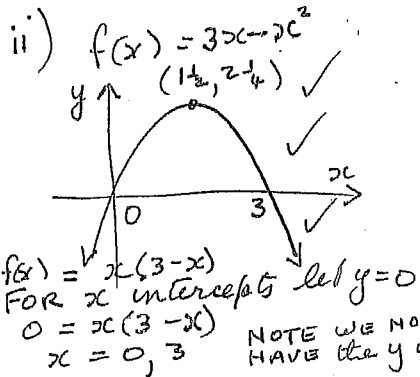 ii) f(x) = 3x - x²
(1½, 2¼)
y
x
0
3
f(x) = x(3-x)
FOR x intercepts let y=0
0 = x(3-x)
x = 0, 3
NOTE WE NO
HAVE the y